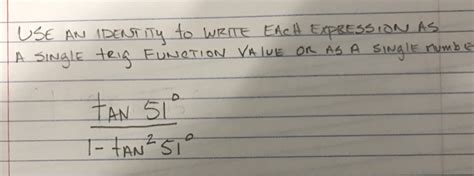 USE AN IDENTITY to WRITE EACH EXPRESSION AS
A SINGLE trig FUNCTION VALUE OR AS A SINGLE numbe
tAN 51°
1 - tAN² 51°